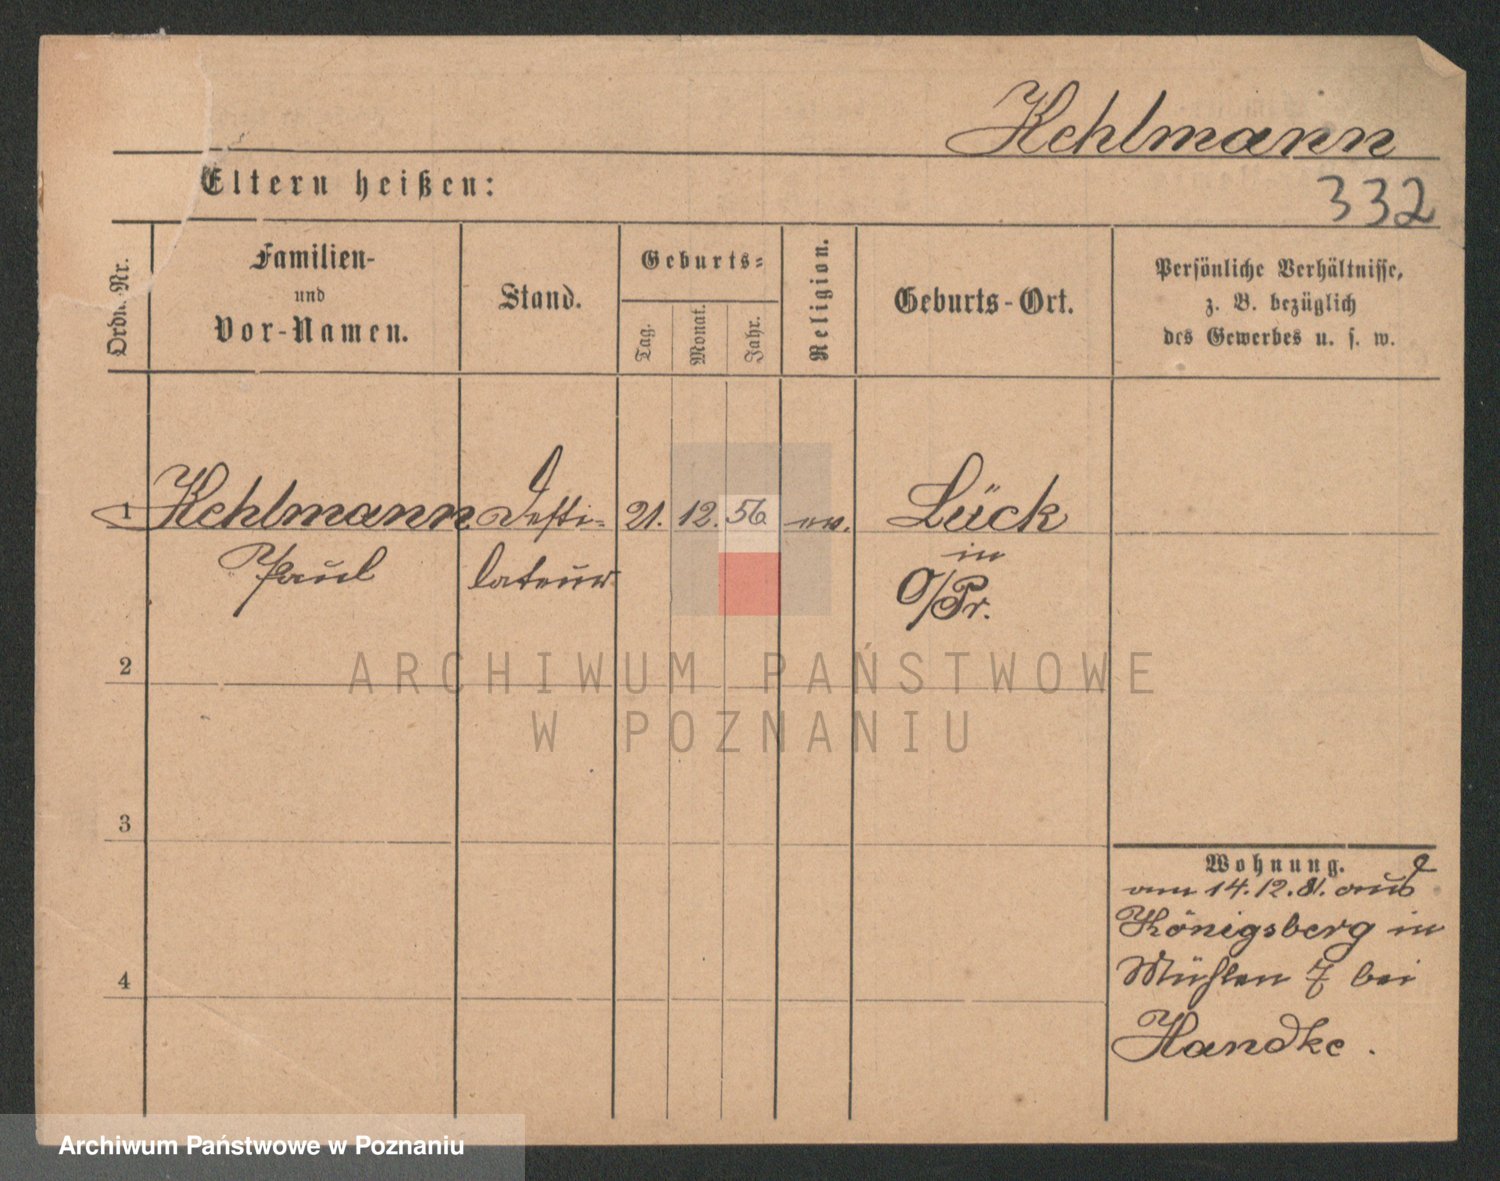 Kehlmann
Eltern heißen:
332
Ordn.-Nr.
Familien-
und
Vor-Namen.
Stand.
Geburts-
Tag.
Monat.
Jahr.
Religion.
Geburts-Ort.
Persönliche Verhältnisse,
z. B. bezüglich
des Gewerbes u. s. w.
1 Kehlmann Desti- 21. 12. 56 ev. Lück
Paul lateur in
O/Pr.
2
3
4
Wohnung.
am 14.12.81. aus
Königsberg in
Mühlen 7 bei
Handke.
ARCHIWUM PAŃSTWOWE
W POZNANIU
Archiwum Państwowe w Poznaniu